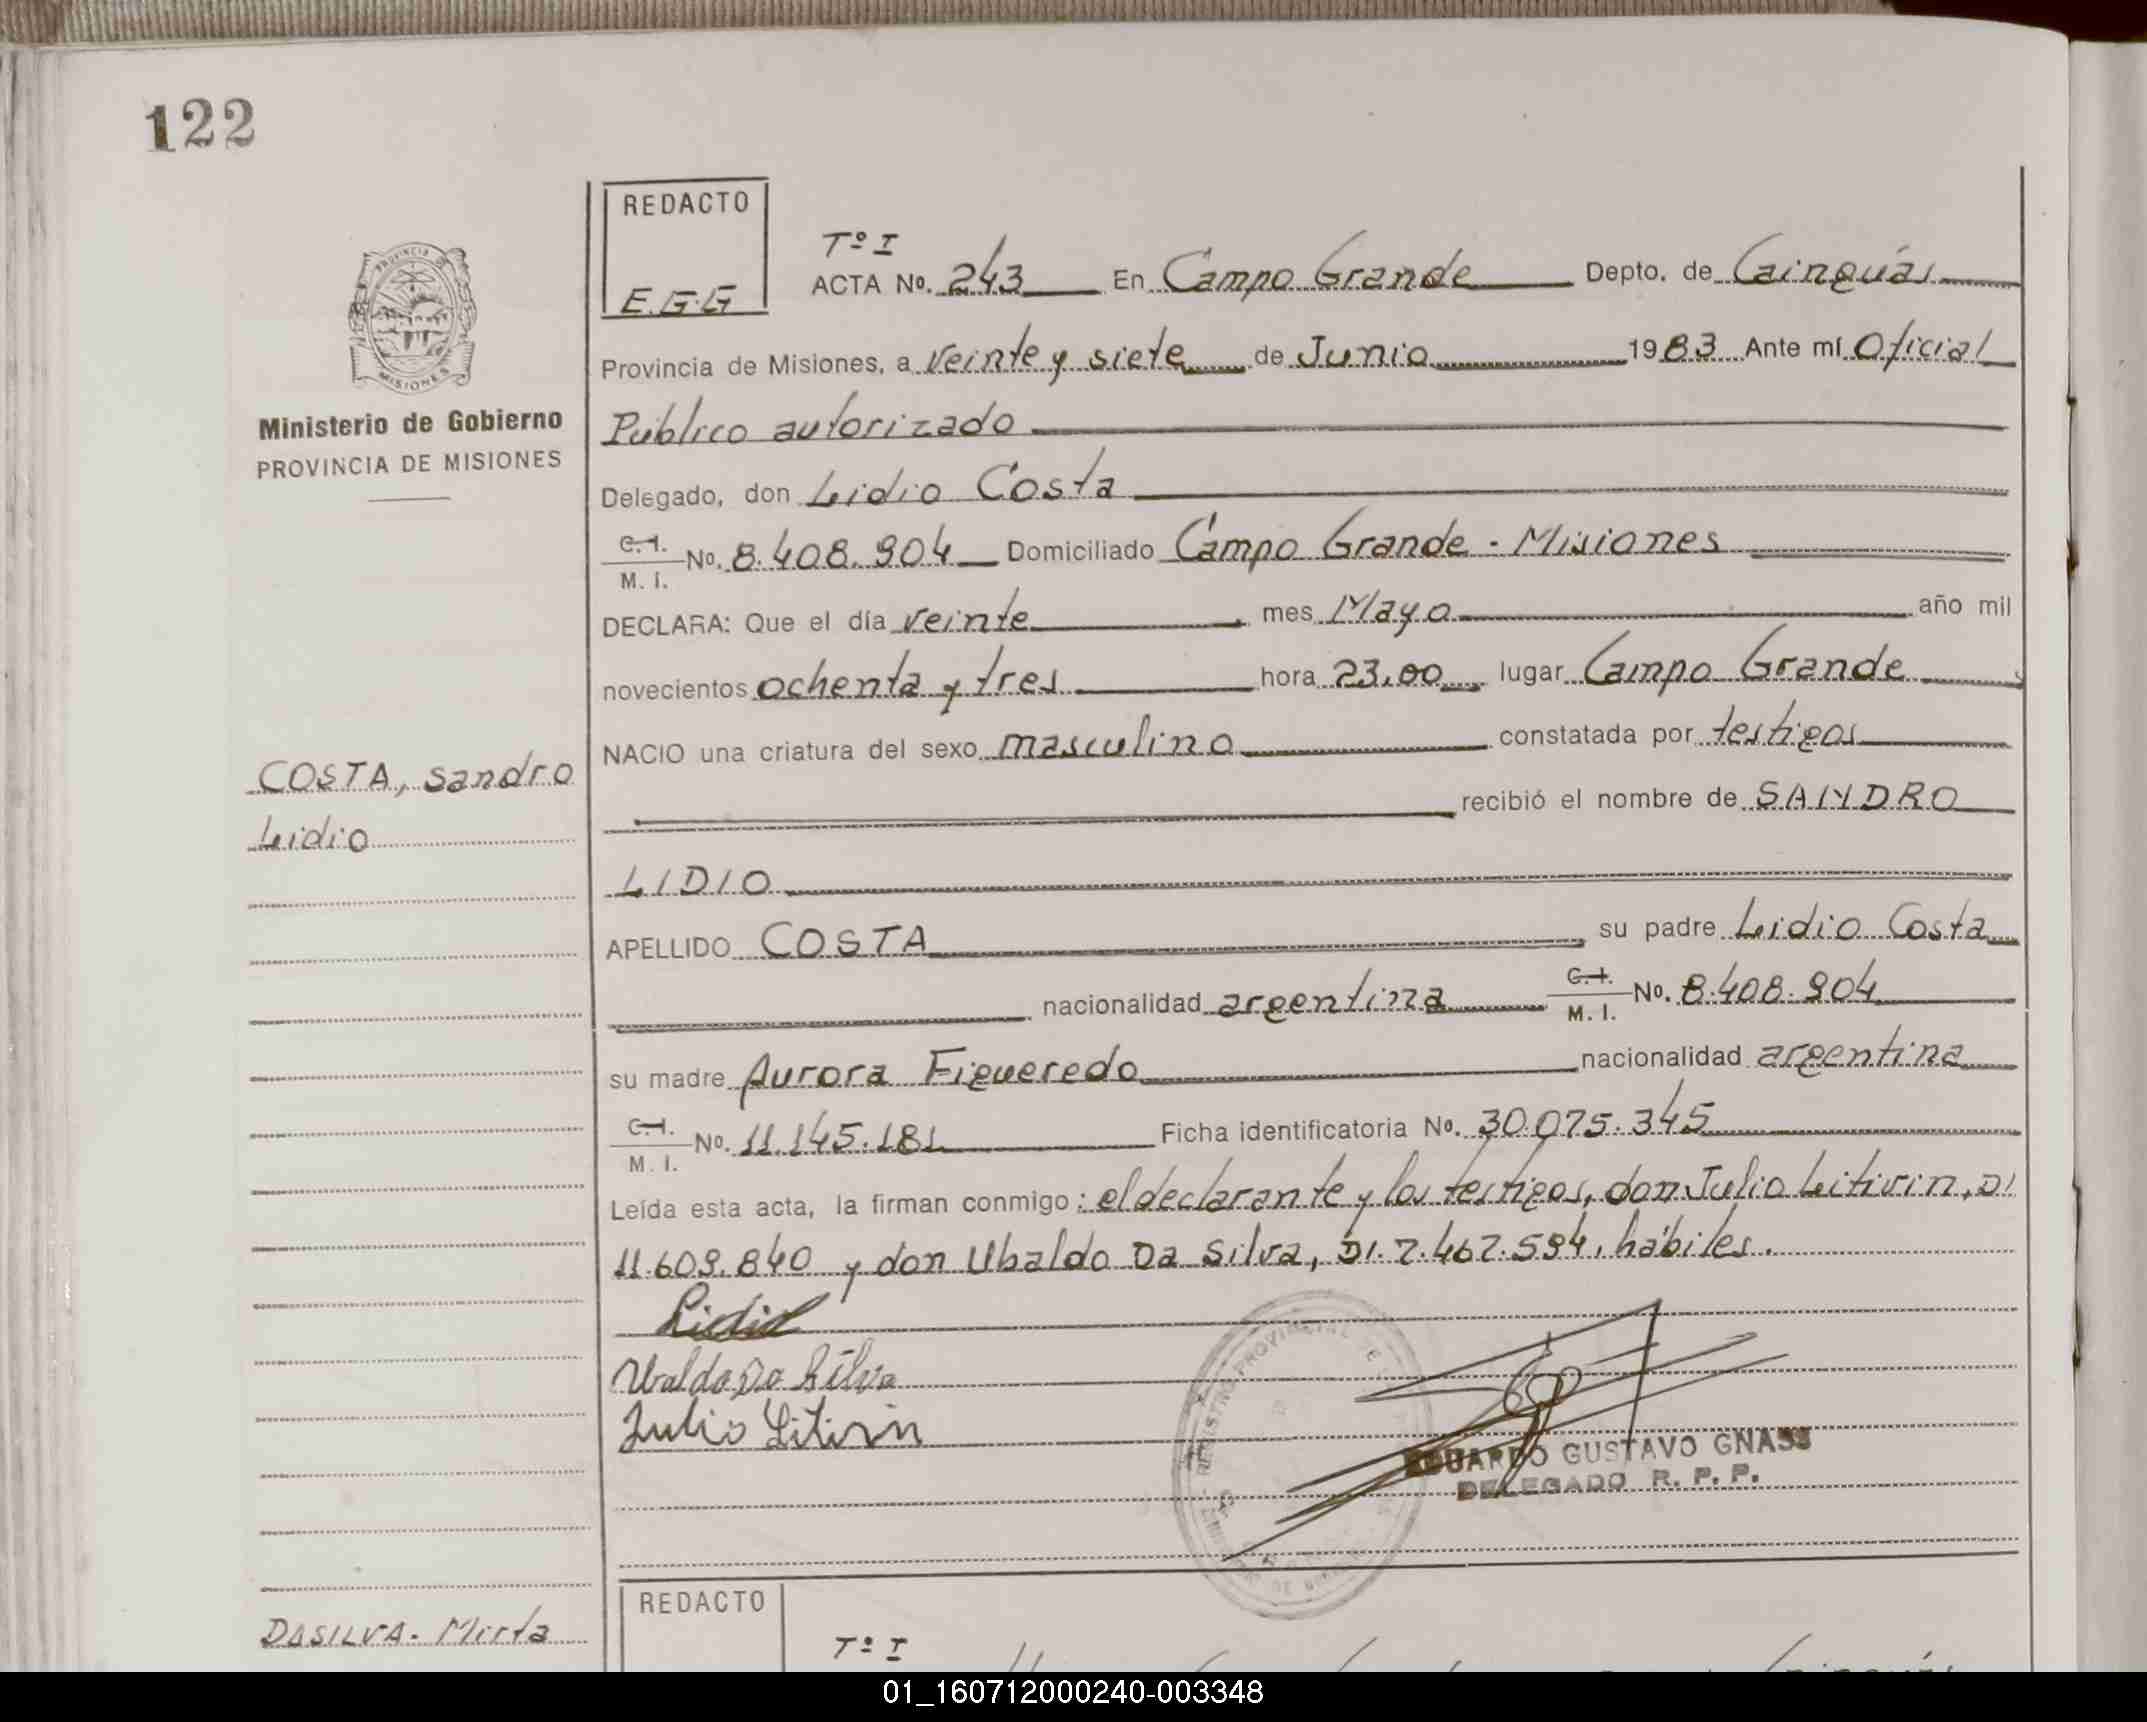 122
REDACTO
E.G.G
Tº I
ACTA Nº. 243 En Campo Grande Depto. de Cainguás
Provincia de Misiones, a veinte y siete de Junio 1983 Ante mí Oficial
Público autorizado
Delegado, don Lidio Costa
C.I.
M. I. Nº. 8.408.904 Domiciliado Campo Grande - Misiones
DECLARA: Que el día veinte, mes Mayo año mil
novecientos ochenta y tres hora 23,00 lugar Campo Grande
NACIO una criatura del sexo masculino constatada por testigos
recibió el nombre de SANDRO
LIDIO
APELLIDO COSTA su padre Lidio Costa
nacionalidad argentina C.I. M. I. Nº. 8.408.904
su madre Aurora Figueredo nacionalidad argentina
C.I.
M. I. Nº. 11.145.181 Ficha identificatoria Nº. 30.075.345
Leída esta acta, la firman conmigo: el declarante y los testigos, don Julio Litivin, DI
11.609.840 y don Ubaldo Da Silva, DI. 7.467.594, hábiles.
Lidio
Ubaldo Da Silva
Julio Litivin
EDUARDO GUSTAVO GNASS
DELEGADO R. P. P.
PROVINCIA DE
MISIONES
Ministerio de Gobierno
PROVINCIA DE MISIONES
COSTA, Sandro
Lidio
DASILVA. Mirta
REDACTO
Tº I
REGISTRO PROVINCIAL DE
01_160712000240-003348